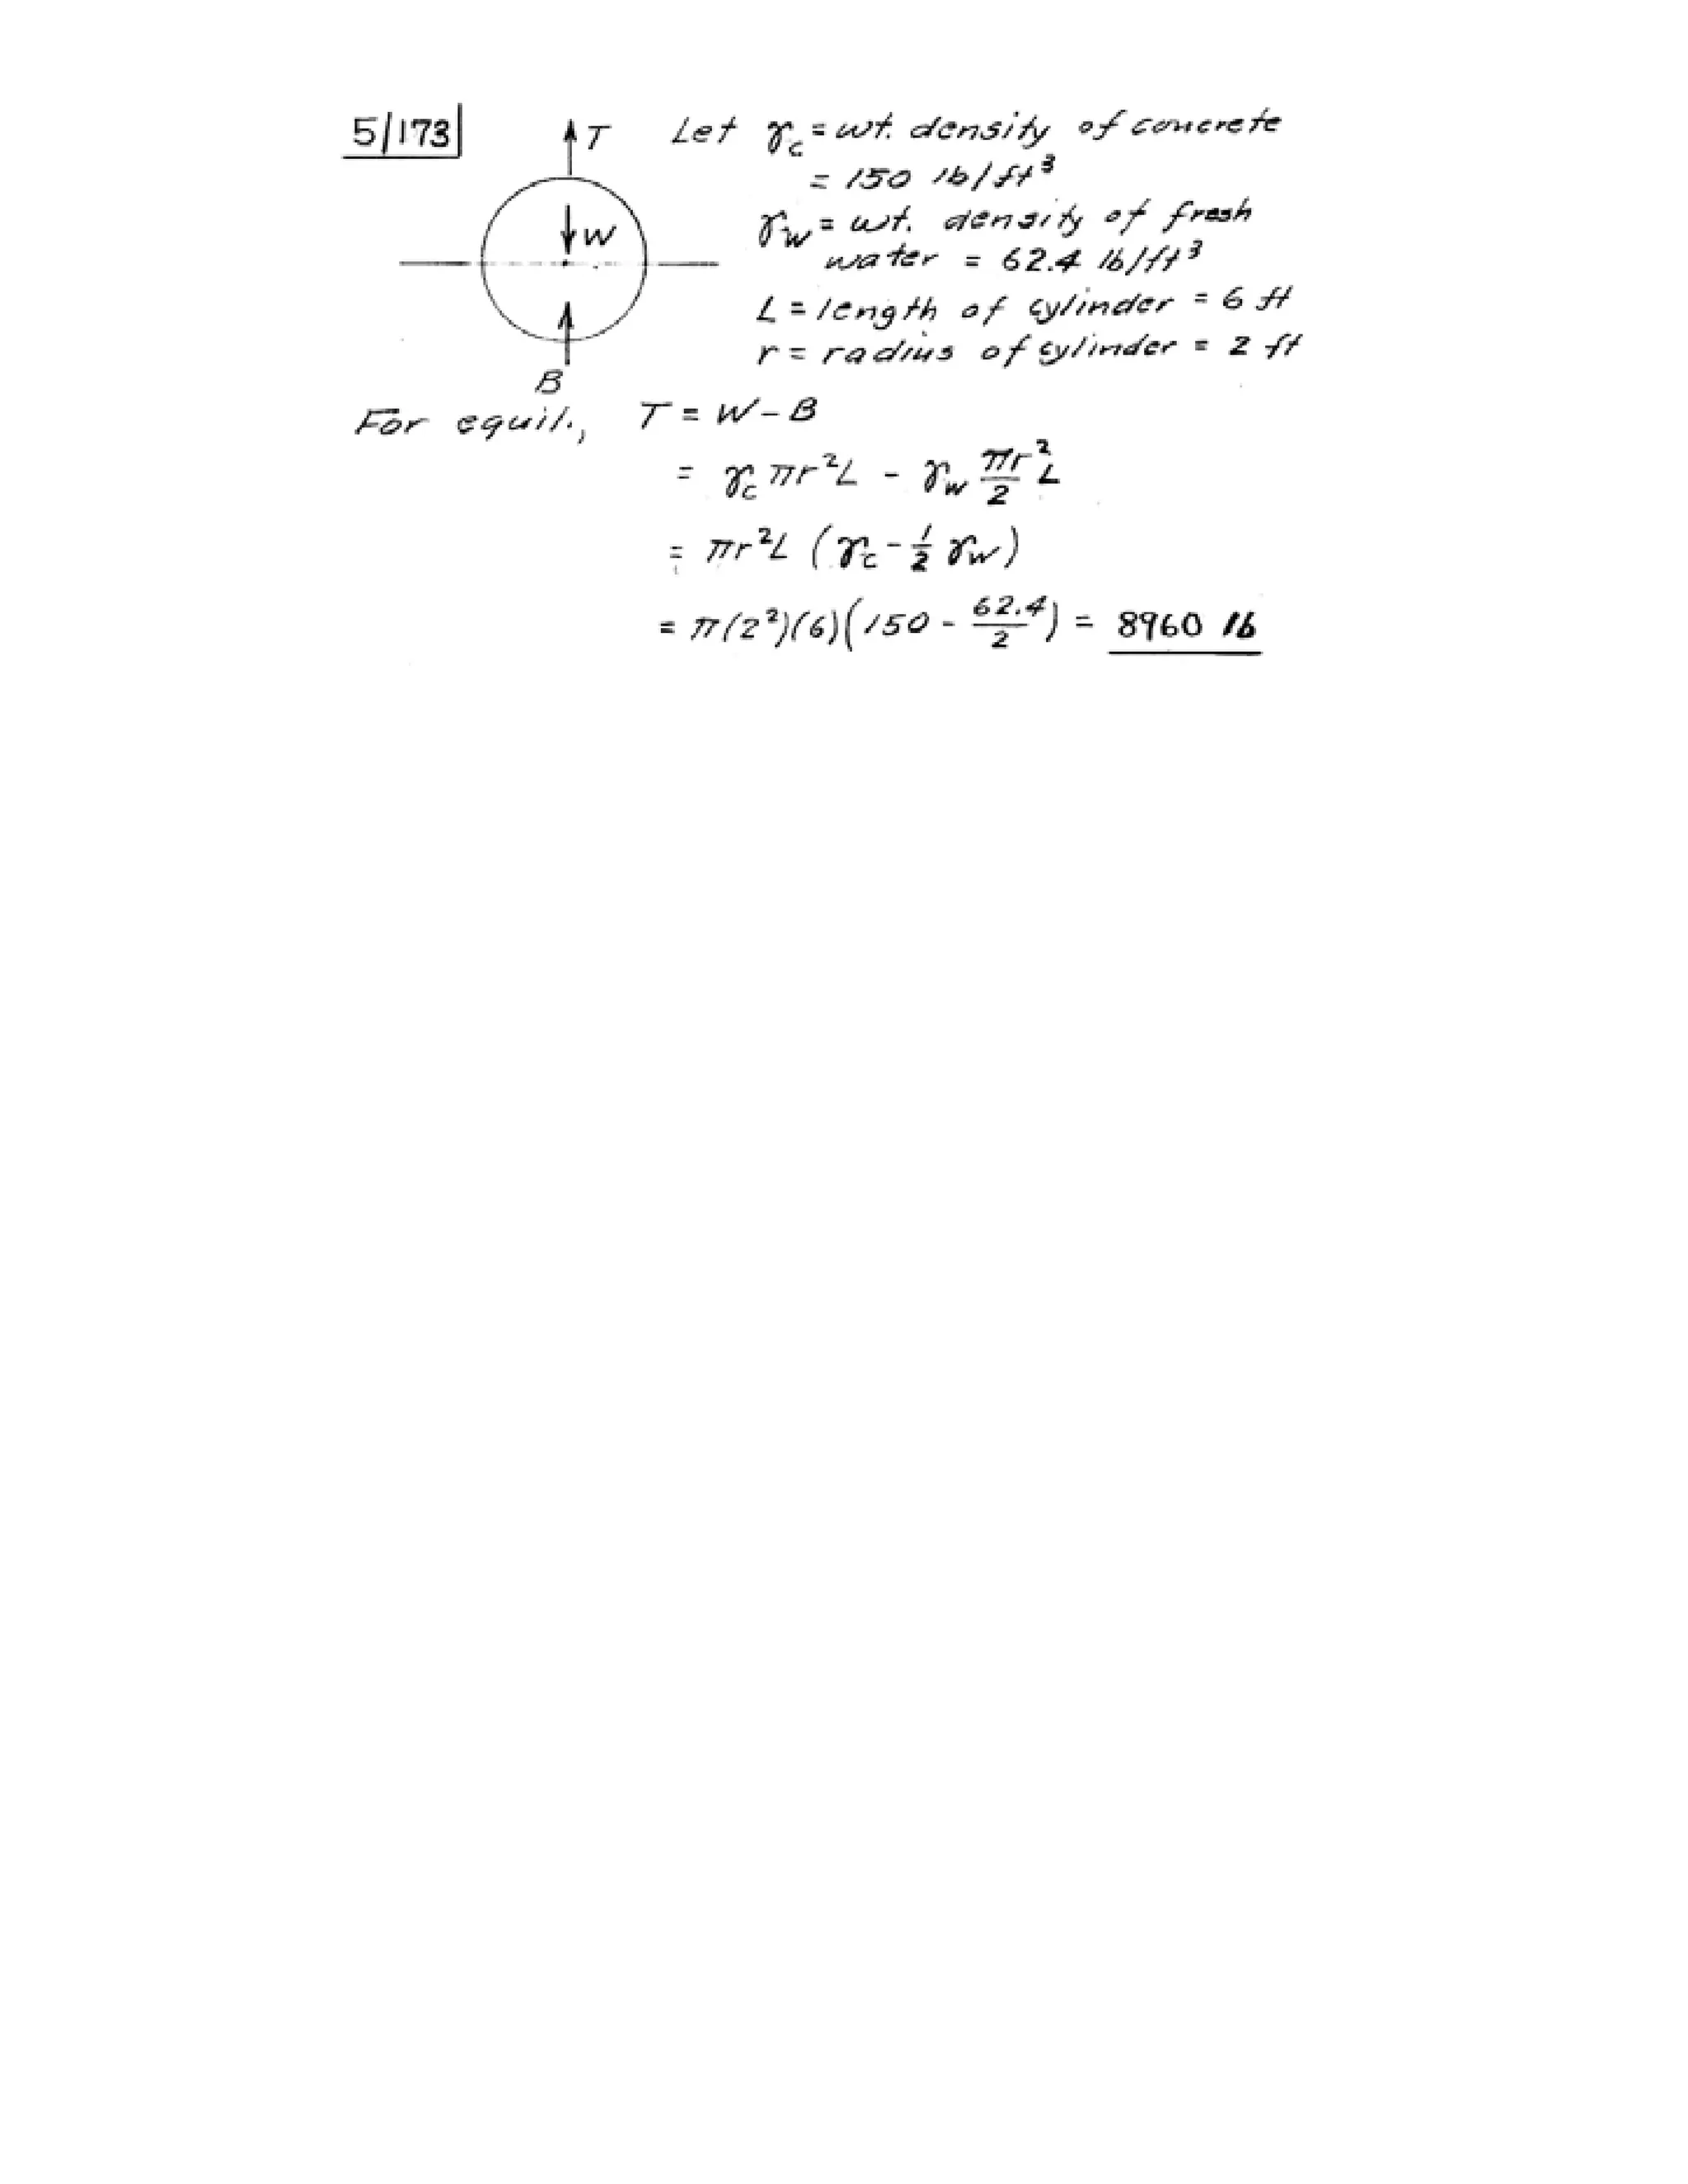 5/173
T
Let γc = wt. density of concrete
= 150 lb/ft³
W
γw = wt. density of fresh
water = 62.4 lb/ft³
L = length of cylinder = 6 ft
r = radius of cylinder = 2 ft
B
For equil., T = W - B
= γc πr²L - γw πr²/2 L
= πr²L (γc - 1/2 γw)
= π(2²)(6)(150 - 62.4/2) = 8960 lb